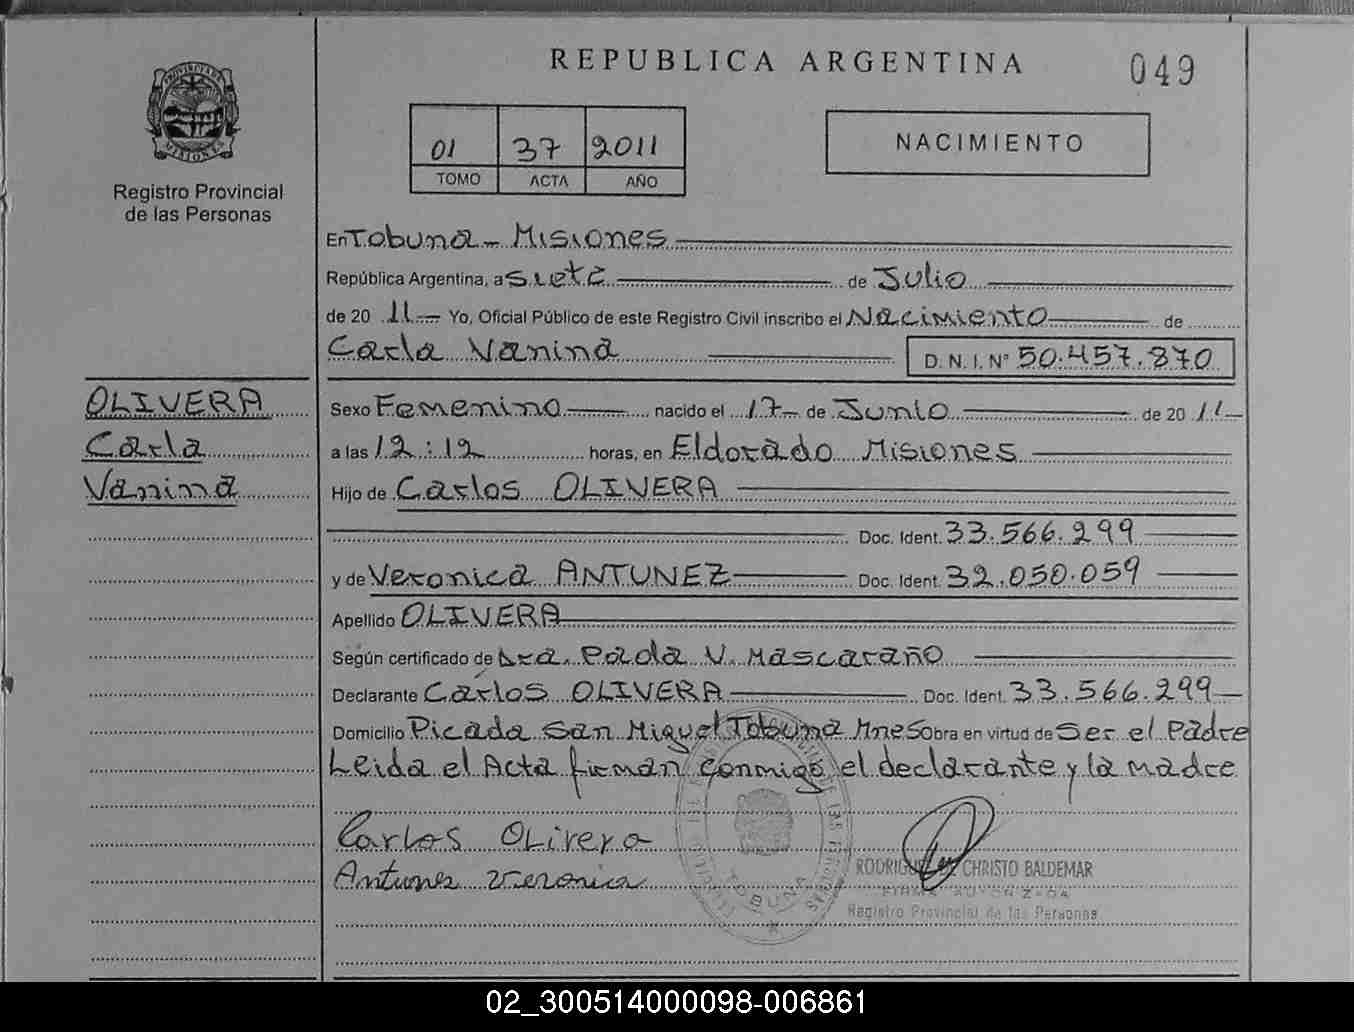 REPUBLICA ARGENTINA
049
PROVINCIA DE
MISIONES
Registro Provincial
de las Personas
01 37 2011
TOMO ACTA AÑO
NACIMIENTO
En Tobuna - Misiones
República Argentina, a Siete de Julio
de 20 11 Yo, Oficial Público de este Registro Civil inscribo el Nacimiento de
Carla Vanina D. N. I. Nº 50.457.870
OLIVERA
Carla
Vanina
Sexo Femenino nacido el 17 de Junio de 20 11
a las 12:12 horas, en Eldorado Misiones
Hijo de Carlos OLIVERA
Doc. Ident. 33.566.299
y de Veronica ANTUNEZ Doc. Ident. 32.050.059
Apellido OLIVERA
Según certificado de Dra. Paola V. Mascaraño
Declarante Carlos OLIVERA Doc. Ident. 33.566.299
Domicilio Picada San Miguel Tobuna Mnes Obra en virtud de Ser el Padre
Leida el Acta firman conmigo el declarante y la madre
Carlos OLivera
Antunes Veronica
TOBUNA
CHRISTO BALDEMAR
FIRMA AUTORIZADA
Registro Provincial de las Personas
02_300514000098-006861